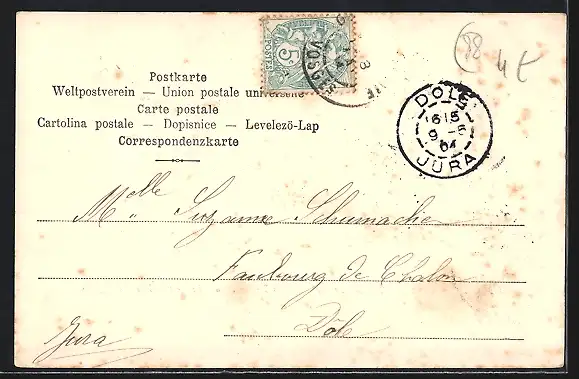 Postkarte
Weltpostverein — Union postale universelle
Carte postale
Cartolina postale — Dopisnice — Levelező-Lap
Correspondenzkarte
5
POSTES
VOSGES
98
4 £
DOLE
16 15
9 - 5
04
JURA
Melle Suzanne Schumacher
Faubourg de Chalon
Dôle
Jura